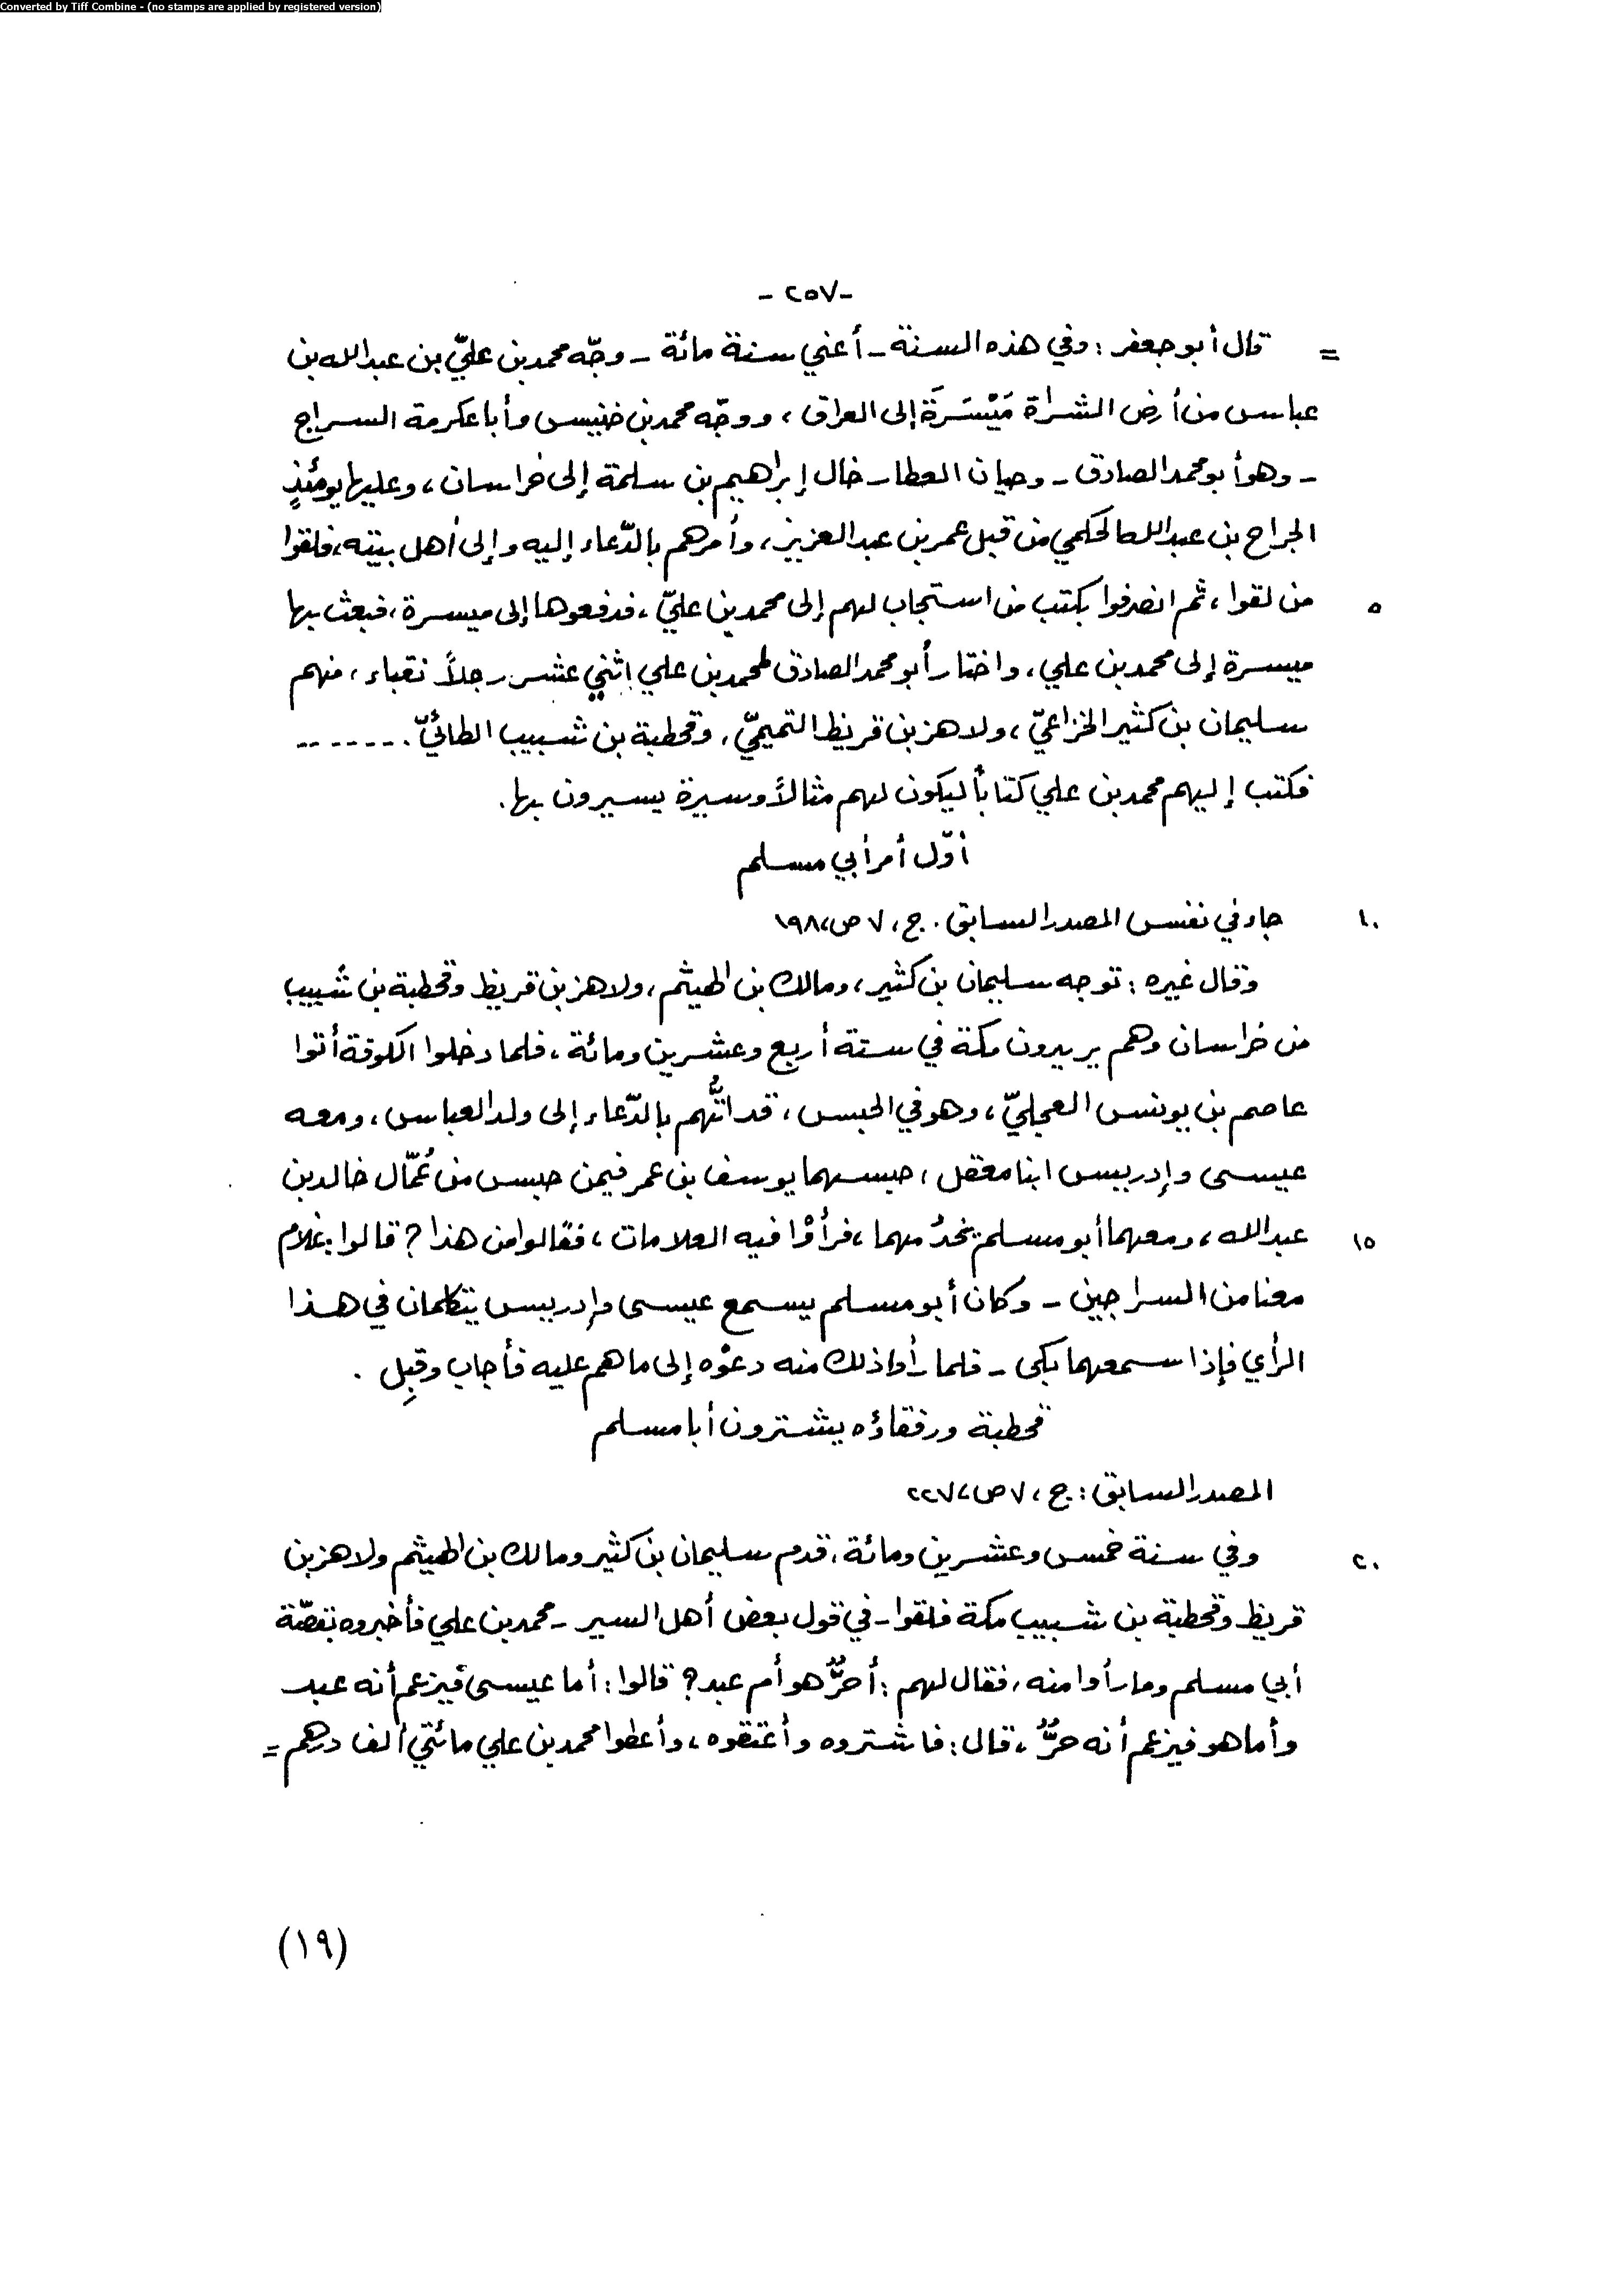 Converted by Tiff Combine - (no stamps are applied by registered version)
- ٢٥٧ -
= قال أبو جعفر : وفي هذه السنة - أعني سنة مائة - وجّه محمد بن عليّ بن عبدالله بن
عباس من أرض الشراة مَيْسَرَة إلى العراق ، ووجّه محمد بن خنيس وأبا عكرمة السراج
- وهو أبو محمد الصادق - وحيان العطار خال إبراهيم بن سلمة إلى خراسان ، وعليها يومئذٍ
الجراح بن عبدالله الحكمي من قبل عمر بن عبد العزيز ، وأمرهم بالدّعاء إليه وإلى أهل بيته ، فلقوا
٥ من لقوا ، ثم انصرفوا بكتب من استجاب لهم إلى محمد بن عليّ ، فدفعوها إلى ميسرة ، فبعث بها
ميسرة إلى محمد بن علي ، واختار أبو محمد الصادق لمحمد بن علي اثني عشر رجلاً نقباء ، منهم
سليمان بن كثير الخزاعيّ ، ولاهز بن قريظ التميميّ ، وقحطبة بن شبيب الطائيّ . - - - - - - -
فكتب إليهم محمد بن علي كتاباً ليكون لهم مثالاً وسيرة يسيرون بها .
أوّل أمر أبي مسلم
١٠ جاء في نفس المصدر السابق . ج ، ٧ ص ، ١٩٨
وقال غيره : توجه سليمان بن كثير ، ومالك بن الهيثم ، ولاهز بن قريظ وقحطبة بن شبيب
من خراسان وهم يريدون مكة في سنة أربع وعشرين ومائة ، فلما دخلوا الكوفة أتوا
عاصم بن يونس العجليّ ، وهو في الحبس ، قد اتُّهم بالدّعاء إلى ولد العباس ، ومعه
عيسى وإدريس ابنا معقل ، حبسهما يوسف بن عمر فيمن حبس من عُمّال خالد بن
١٥ عبدالله ، ومعهما أبو مسلم يخدُمهما ، فرأوْا فيه العلامات ، فقالوا من هذا ? قالوا : غلام
معنا من السراجين - وكان أبو مسلم يسمع عيسى وإدريس يتكلمان في هذا
الرأي فإذا سمعهما بكى - فلما رأوا ذلك منه دعوْه إلى ما هم عليه فأجاب وقبِل .
قحطبة ورفقاؤه يشترون أبا مسلم
المصدر السابق : ج ، ٧ ص ، ٢٢٧
٢٠ وفي سنة خمس وعشرين ومائة ، قدم سليمان بن كثير ومالك بن الهيثم ولاهز بن
قريظ وقحطبة بن شبيب مكة فلقوا - في قول بعض أهل السير - محمد بن علي فأخبروه بقصّة
أبي مسلم وما رأوا منه ، فقال لهم : أحرٌّ هو أم عبد ? قالوا : أما عيسى فيزعم أنه عبد
وأما هو فيزعم أنه حرٌّ ، قال : فاشتروه وأعتقوه ، وأعطوا محمد بن علي مائتي ألف درهم =
(١٩)